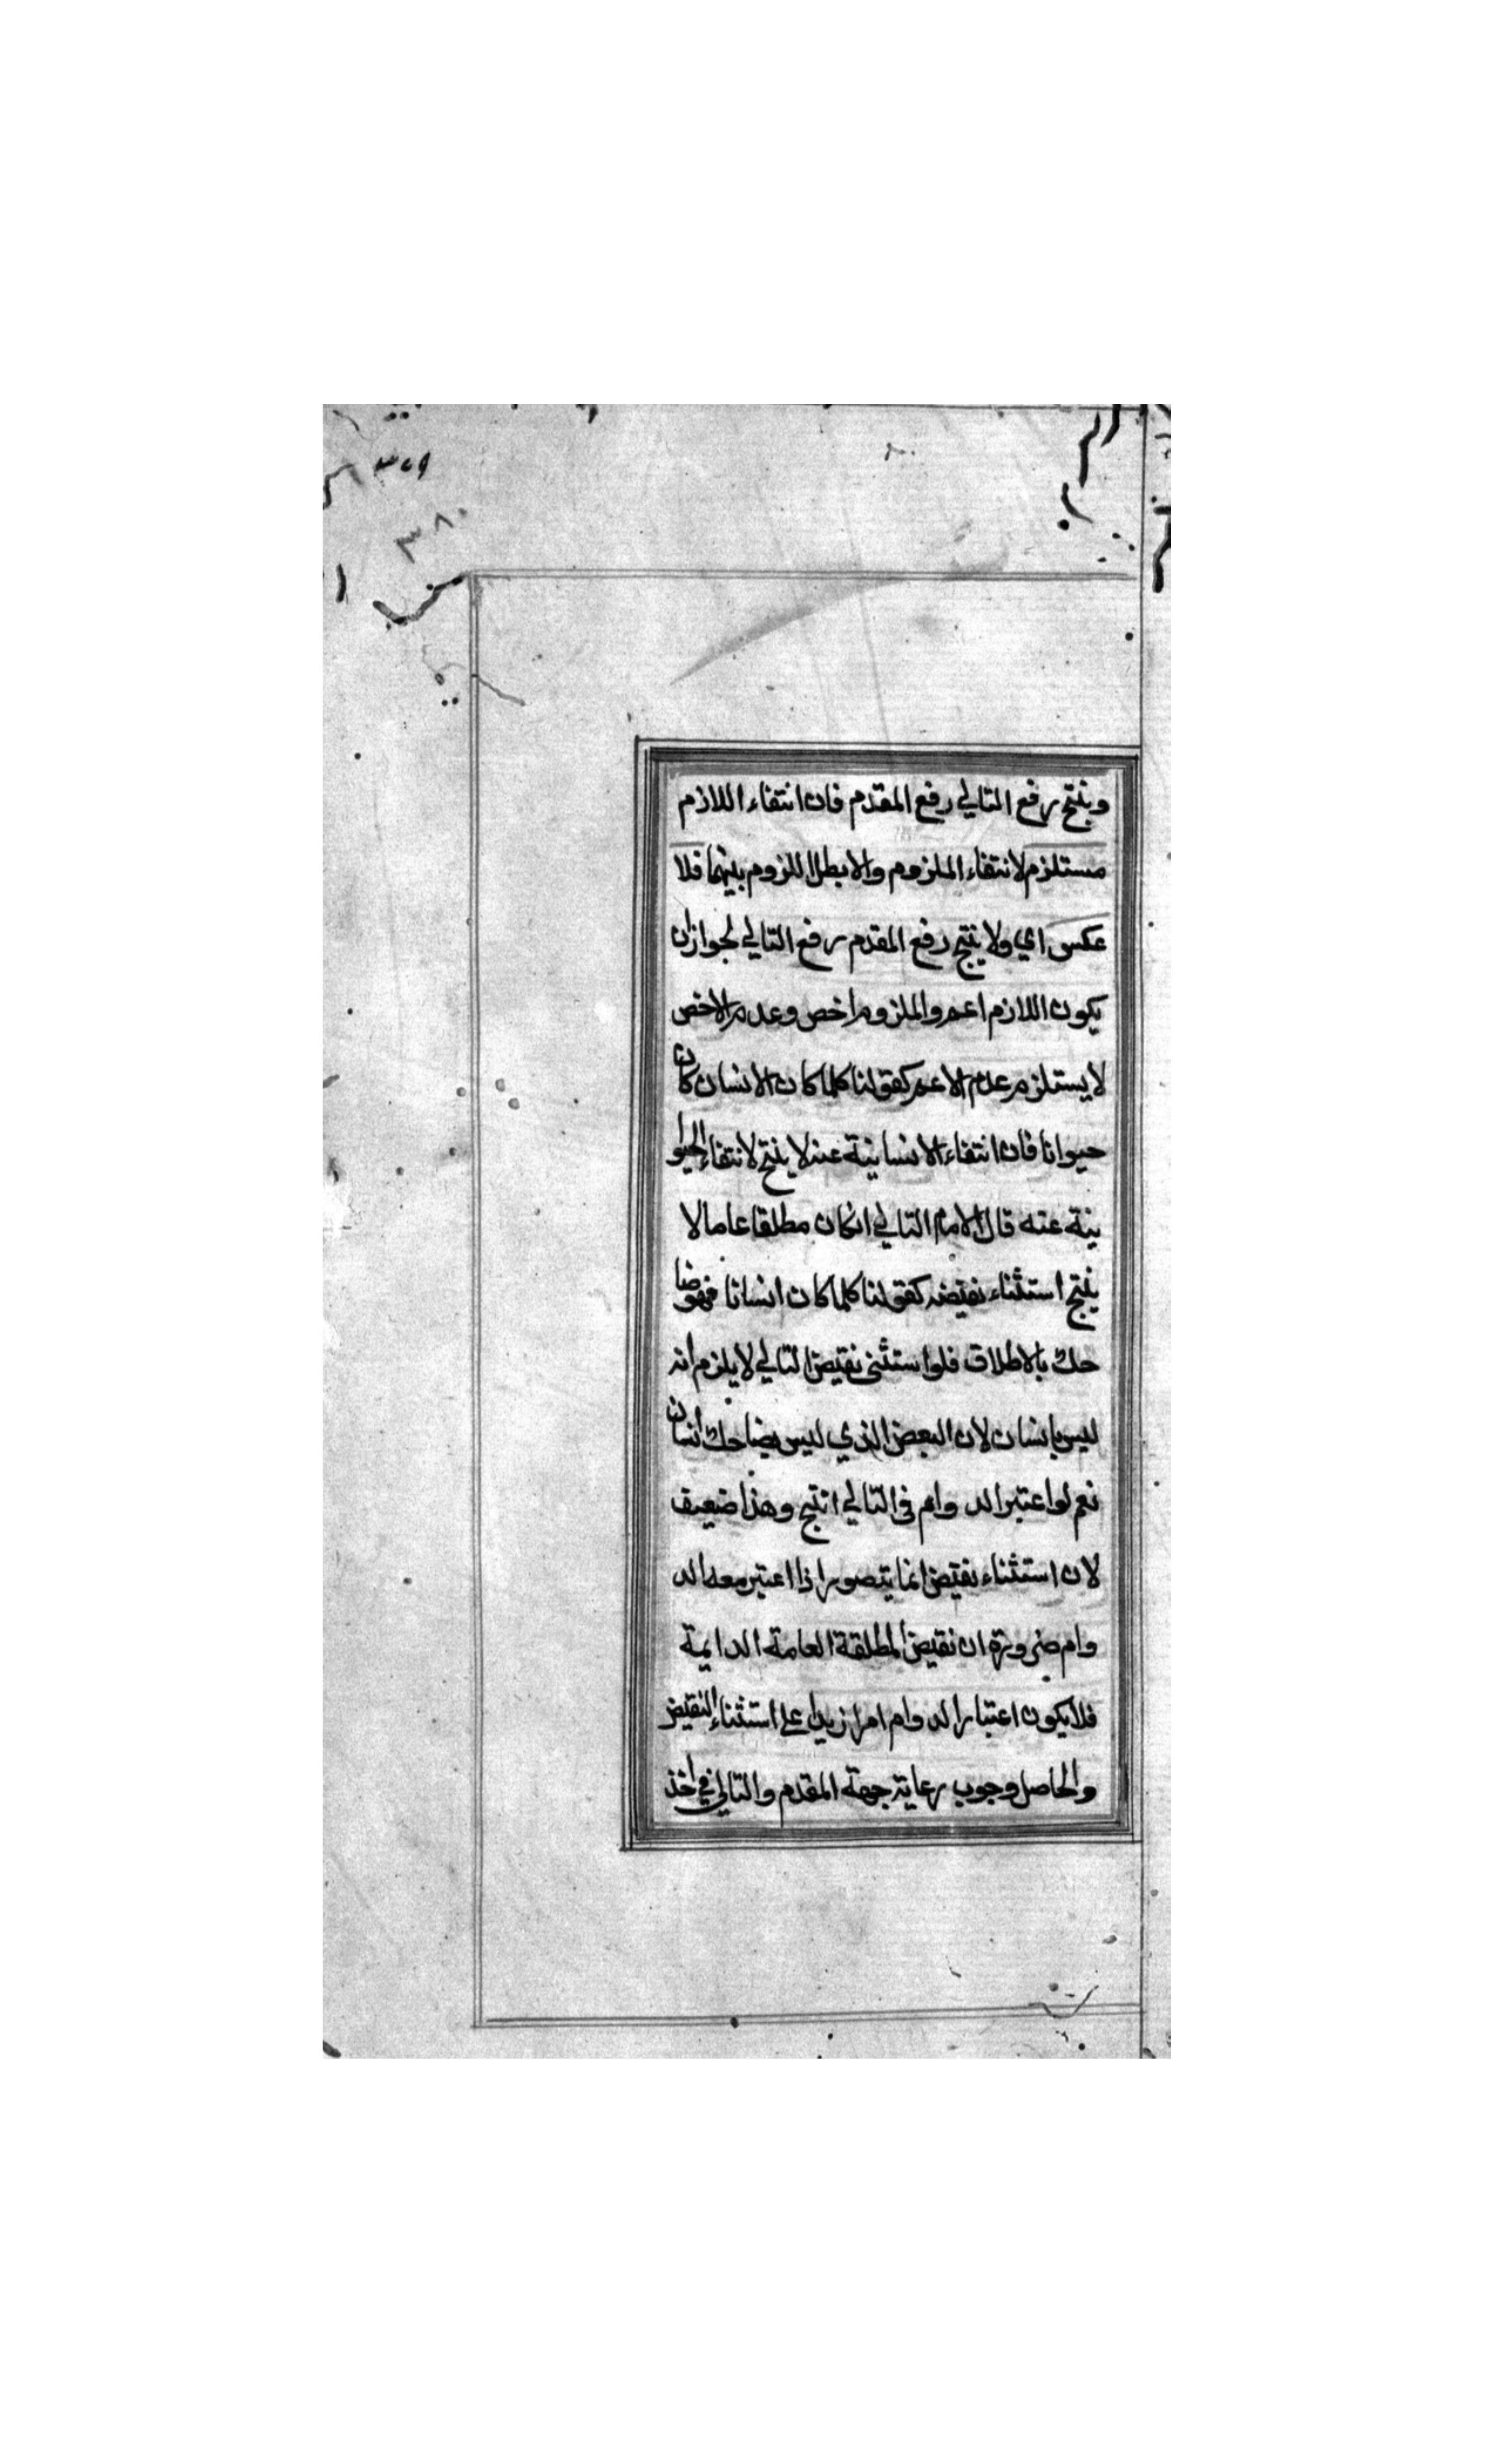 ٣٧٩
٣٨٠
وينتج رفع التالي رفع المقدم فان انتفاء اللازم
مستلزم لانتفاء الملزوم والا بطل اللزوم بينهما فلا
عكس اي ولا ينتج رفع المقدم رفع التالي لجواز ان
يكون اللازم اعم والملزوم اخص وعدم الاخص
لا يستلزم عدم الاعم كقولنا كلما كان الانسان كان
حيوانا فان انتفاء الانسانية عنه لا ينتج لانتفاء الحيوا
نية عنه قال الامام التالي انكان مطلقا عاما لا
ينتج استثناء نقيضه كقولنا كلما كان انسانا فهو ضا
حك بالاطلاق فلو استثنى نقيض التالي لا يلزم انه
ليس بانسان لان البعض الذي ليس بضاحك انسان
نعم لو اعتبر الدوام في التالي انتج وهذا ضعيف
لان استثناء نقيض انما يتصور اذا اعتبر معه الد
وام ضرورة ان نقيض المطلقة العامة الدايمة
فلا يكون اعتبار الدوام امرا زيدا على استثناء النقيض
والحاصل وجوب رعاية جهة المقدم والتالي في اخذ